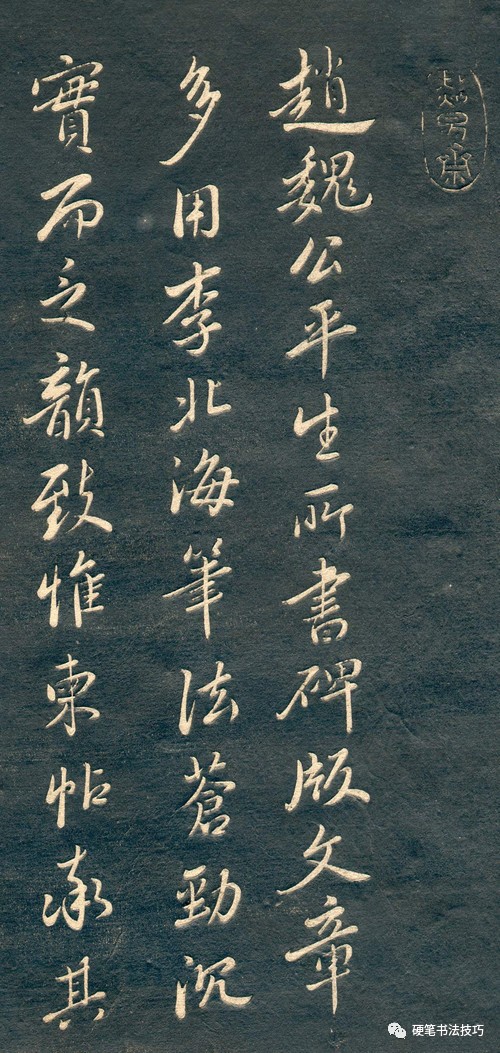 趙魏公平生所書碑版文章
多用李北海筆法蒼勁沉
實而乏韻致惟柬帖其
硬笔书法技巧